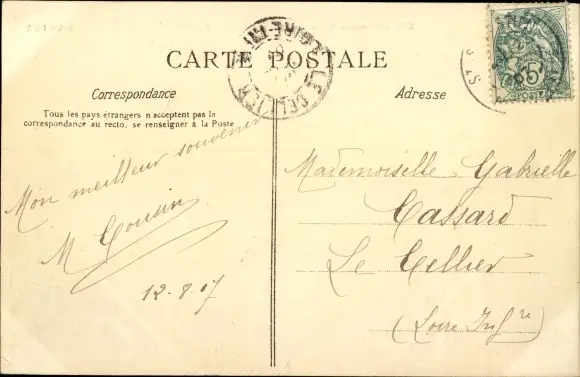 CARTE POSTALE
Correspondance
Tous les pays étrangers n'acceptent pas la
correspondance au recto, se renseigner à la Poste
Mon meilleur souvenir
M Cousin
12-8-07
Adresse
Mademoiselle Gabrielle
Cassard
Le Cellier
(Loire Infre)
LE CELLIER
LOIRE-INF
5
POSTES